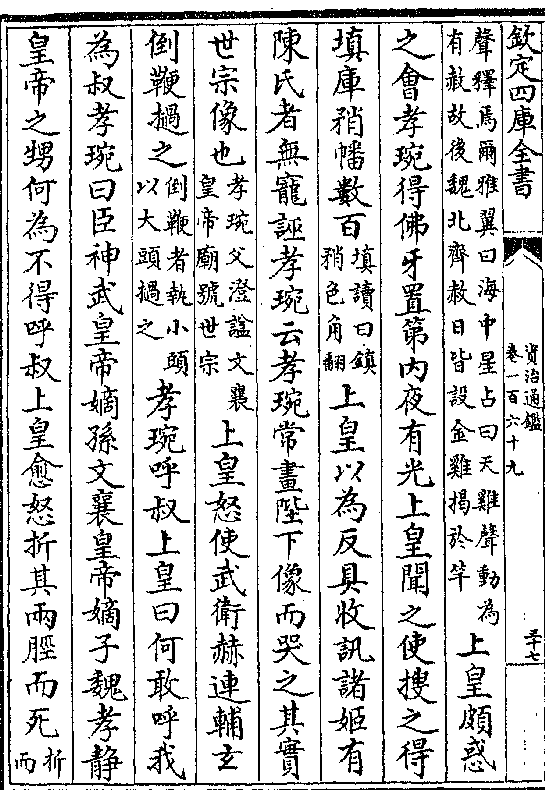 欽定四庫全書
資治通鑑
卷一百六十九
三十七
聲釋焉爾雅翼曰海中星占曰天雞聲動為
有赦故後魏北齊赦日皆設金雞揭於竿
上皇頗惑
之會孝琬得佛牙置第內夜有光上皇聞之使搜之得
填庫矟幡數百
填讀曰鎮
矟色角翻
上皇以為反具收訊諸姬有
陳氏者無寵誣孝琬云孝琬常畫陛下像而哭之其實
世宗像也
孝琬父澄諡文襄
皇帝廟號世宗
上皇怒使武衛赫連輔玄
倒鞭撾之
倒鞭者執小頭
以大頭撾之
孝琬呼叔上皇曰何敢呼我
為叔孝琬曰臣神武皇帝嫡孫文襄皇帝嫡子魏孝静
皇帝之甥何為不得呼叔上皇愈怒折其兩脛而死
折
而